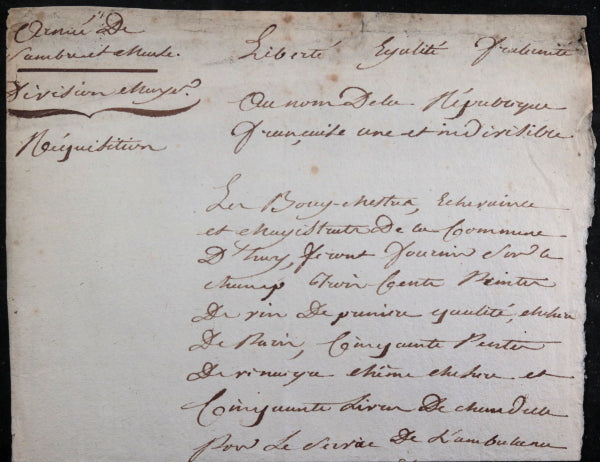 Armée De
Sambre et Meuse.
Division Mayer.
Réquisition
Liberté Egalité Fraternité
Au nom Dela République
Française une et indivisible
Les Bourg-mestres, Echevins
et Magistrats De la Commune
D'huy, feront fournir Sur le
champ Trois Cents Peintes
De vin De premiere qualité, mesure
De Paris, Cinquante Peintes
De vinaigre même mesure et
Cinquante Livres De chandelle
Pour Le Service De L'ambulance